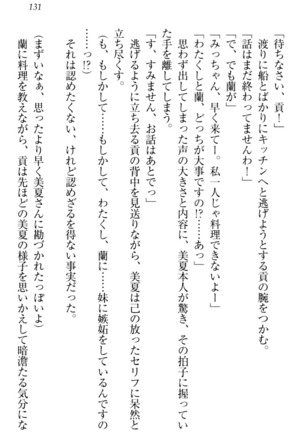 131
「待ちなさい、貢！」
渡りに船とばかりにキッチンへと逃げようとする貢の腕をつかむ。
「話はまだ終わってませんわ！」
「で、でも蘭が」
「みっちゃん、早く来てー。私一人じゃ料理できないよー」
「わたくしと蘭、どっちが大事ですの!?　……あっ」
思わず出してしまった声の大きさと内容に、美夏本人が驚き、その拍子に握ってい
た手を離してしまう。
「す、すみません、お話はあとでっ」
逃げるように立ち去る貢の背中を見送りながら、美夏は己の放ったセリフに呆然と
立ち尽くす。
（も、もしかして……もしかして、わたくし、蘭に……妹に嫉妬をしているんですの
……っ!?）
それは認めたくない、けれど認めざるを得ない事実だった。
（まずいなぁ、思ったより早く美夏さんに勘づかれたっぽいよ）
蘭に料理を教えながら、貢は先ほどの美夏の様子を思いかえして暗澹たる気分にな